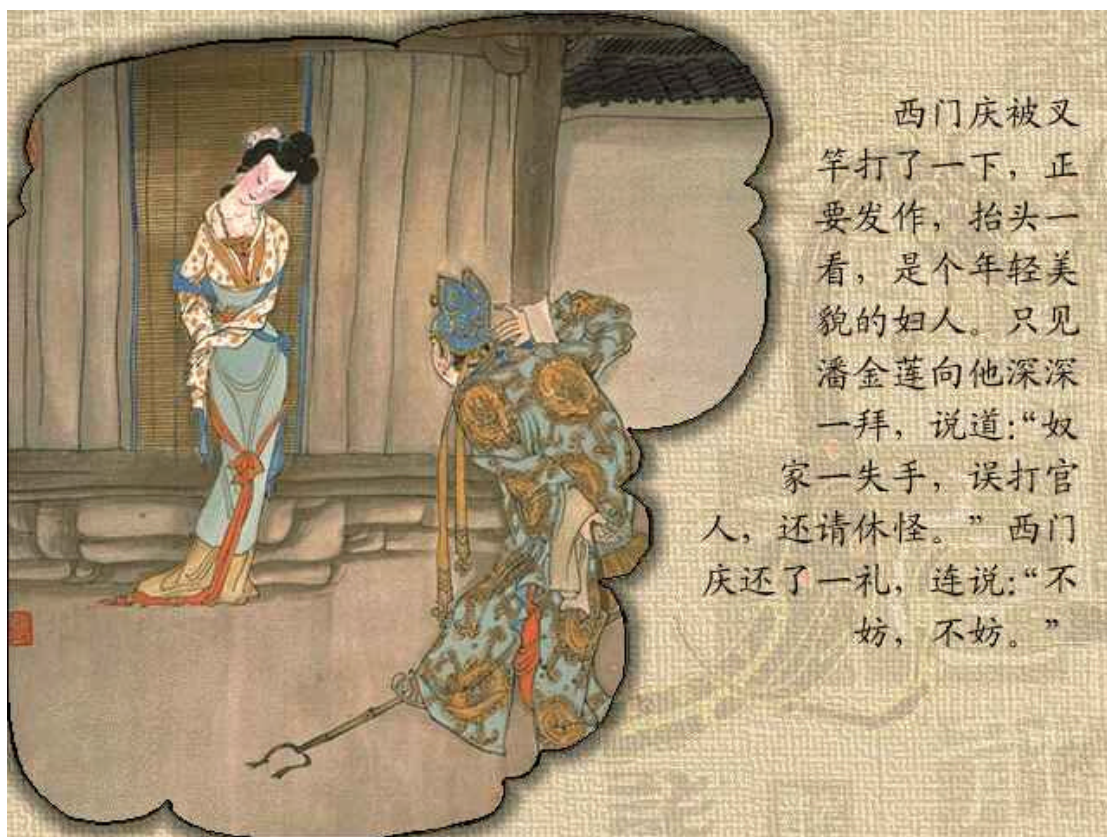 西门庆被叉
竿打了一下，正
要发作，抬头一
看，是个年轻美
貌的妇人。只见
潘金莲向他深深
一拜，说道：“奴
家一失手，误打官
人，还请休怪。”西门
庆还了一礼，连说：“不
妨，不妨。”